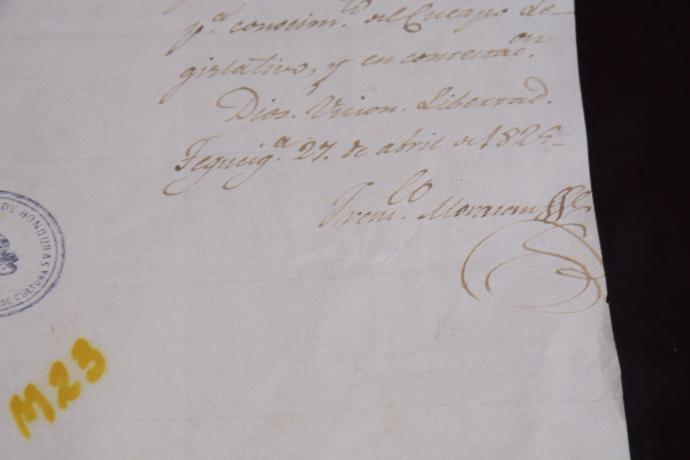 p.ª conocim.to del Cuerpo Le-
gislativo, y en contextac.on
Dios. Union. Libertad.
Tegucig.ª 27. de abril de 1825-
Fran.co Morazan
DE HONDURAS
DE CULTURA
M23